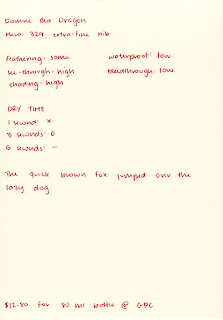 Diamine Red Dragon
Hero 329, extra-fine nib
feathering: some waterproof: low
see-through: high bleedthrough: low
shading: high
DRY TIME
1 second: x
3 seconds: O
6 seconds: —
The quick brown fox jumped over the
lazy dog.
$12.80 for 80 ml bottle @ GPC